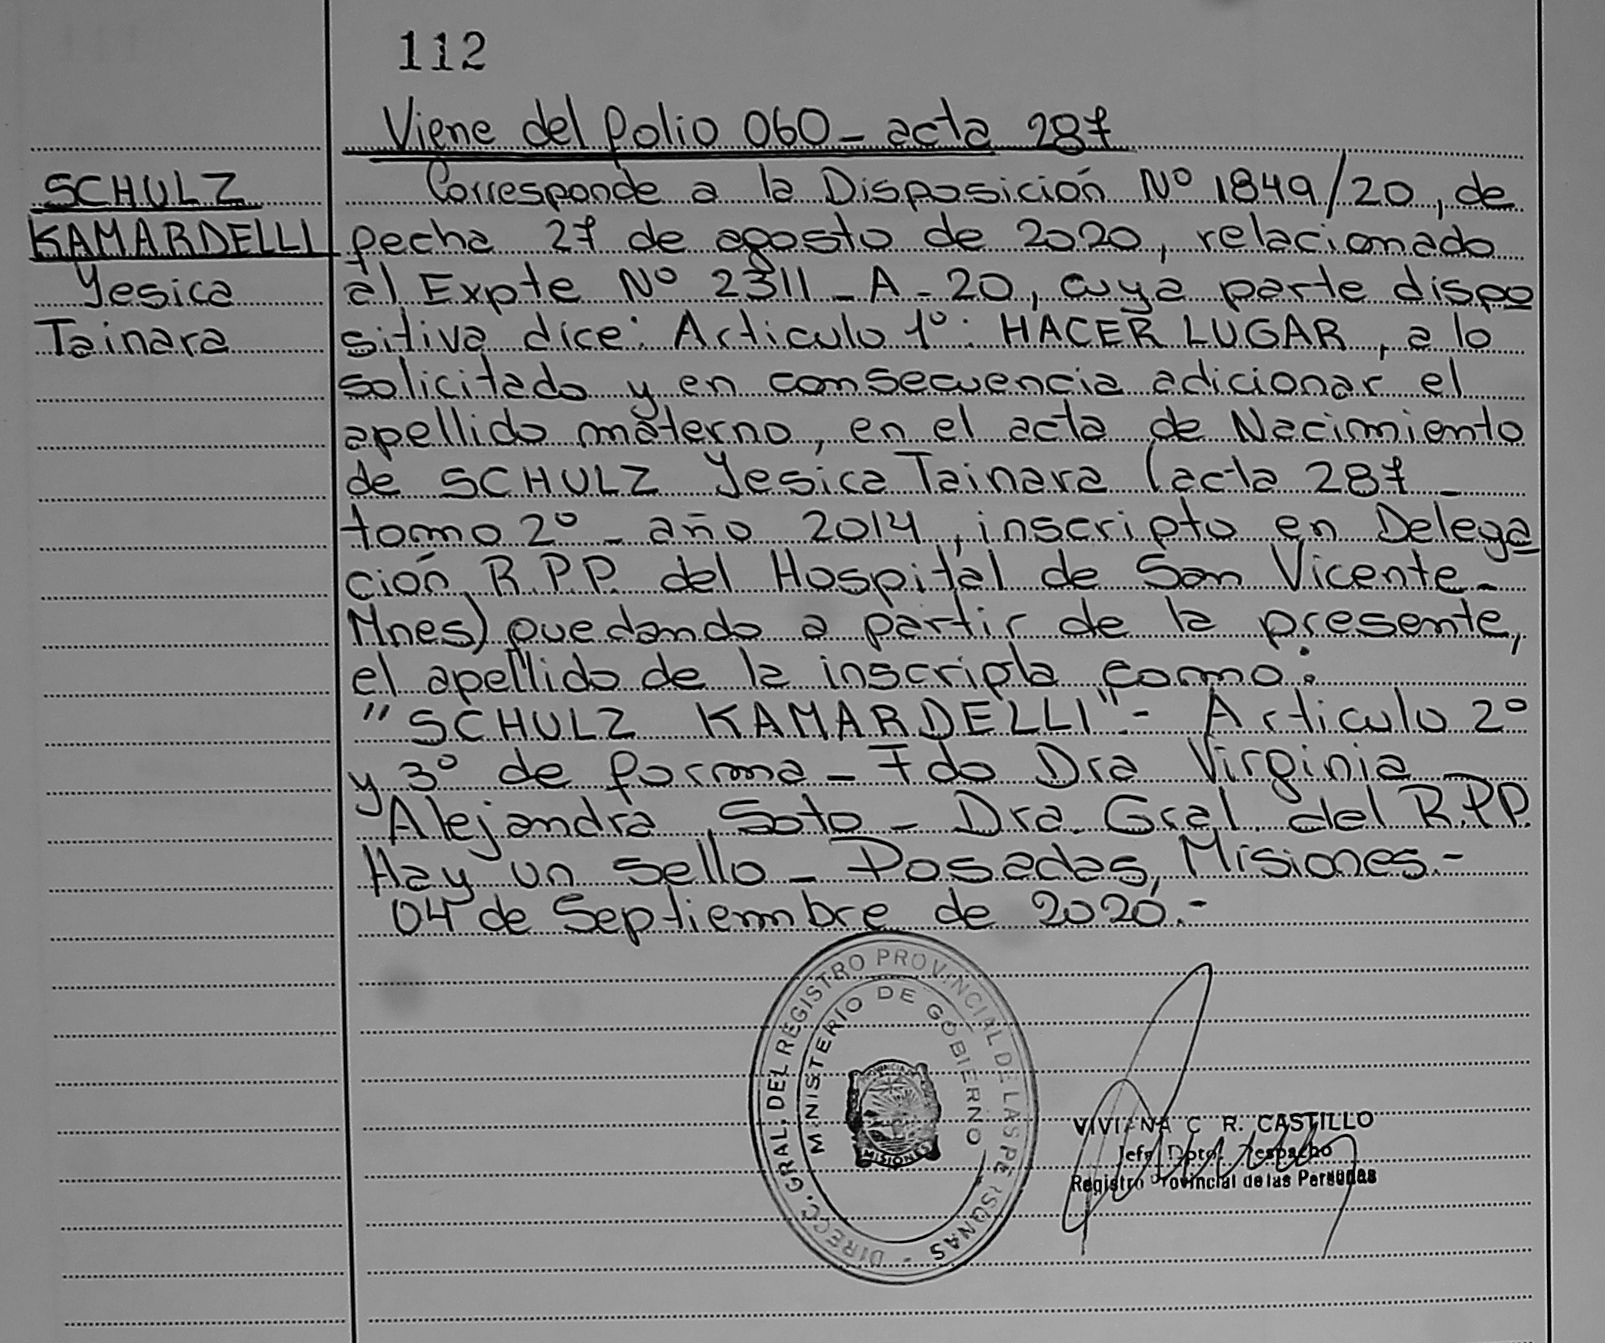 112
Viene del folio 060 - acta 287
SCHULZ
KAMARDELLI
Yesica
Tainara
Corresponde a la Disposición Nº 1849/20, de
fecha 27 de agosto de 2020, relacionado
al Expte Nº 2311 - A - 20, cuya parte dispo
sitiva dice: Articulo 1º: HACER LUGAR, a lo
solicitado y en consecuencia adicionar el
apellido materno, en el acta de Nacimiento
de SCHULZ Yesica Tainara (acta 287 -
tomo 2º - año 2014, inscripto en Delega
ción R.P.P. del Hospital de San Vicente -
Mnes) quedando a partir de la presente,
el apellido de la inscripta como:
"SCHULZ KAMARDELLI" - Articulo 2º
y 3º de forma - Fdo Dra Virginia
Alejandra Soto - Dra. Gral. del R.P.P.
Hay un sello - Posadas, Misiones.-
04 de Septiembre de 2020.-
DIRECC. GRAL. DEL REGISTRO PROVINCIAL DE LAS PERSONAS -
MINISTERIO DE GOBIERNO
MISIONES
VIVIANA C R. CASTILLO
Jefe Dpto. Despacho
Registro Provincial de las Personas